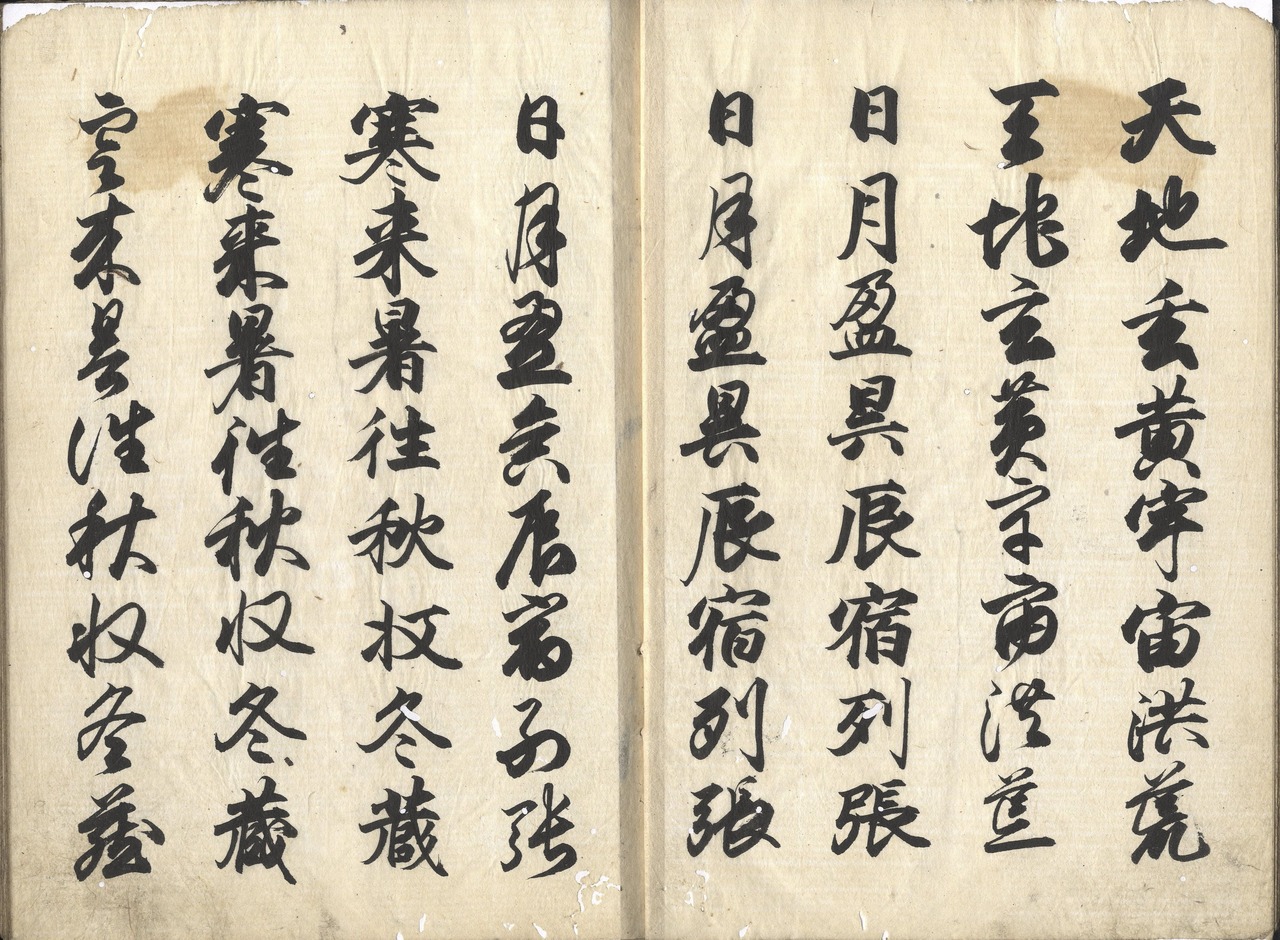 天地玄黄宇宙洪荒
天地玄黄宇宙洪荒
日月盈昃辰宿列張
日月盈昃辰宿列張
日月盈昃辰宿列張
寒来暑往秋収冬蔵
寒来暑往秋収冬蔵
寒来暑往秋収冬蔵